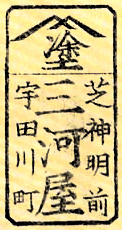 塗
芝神明前
三河屋
宇田川町